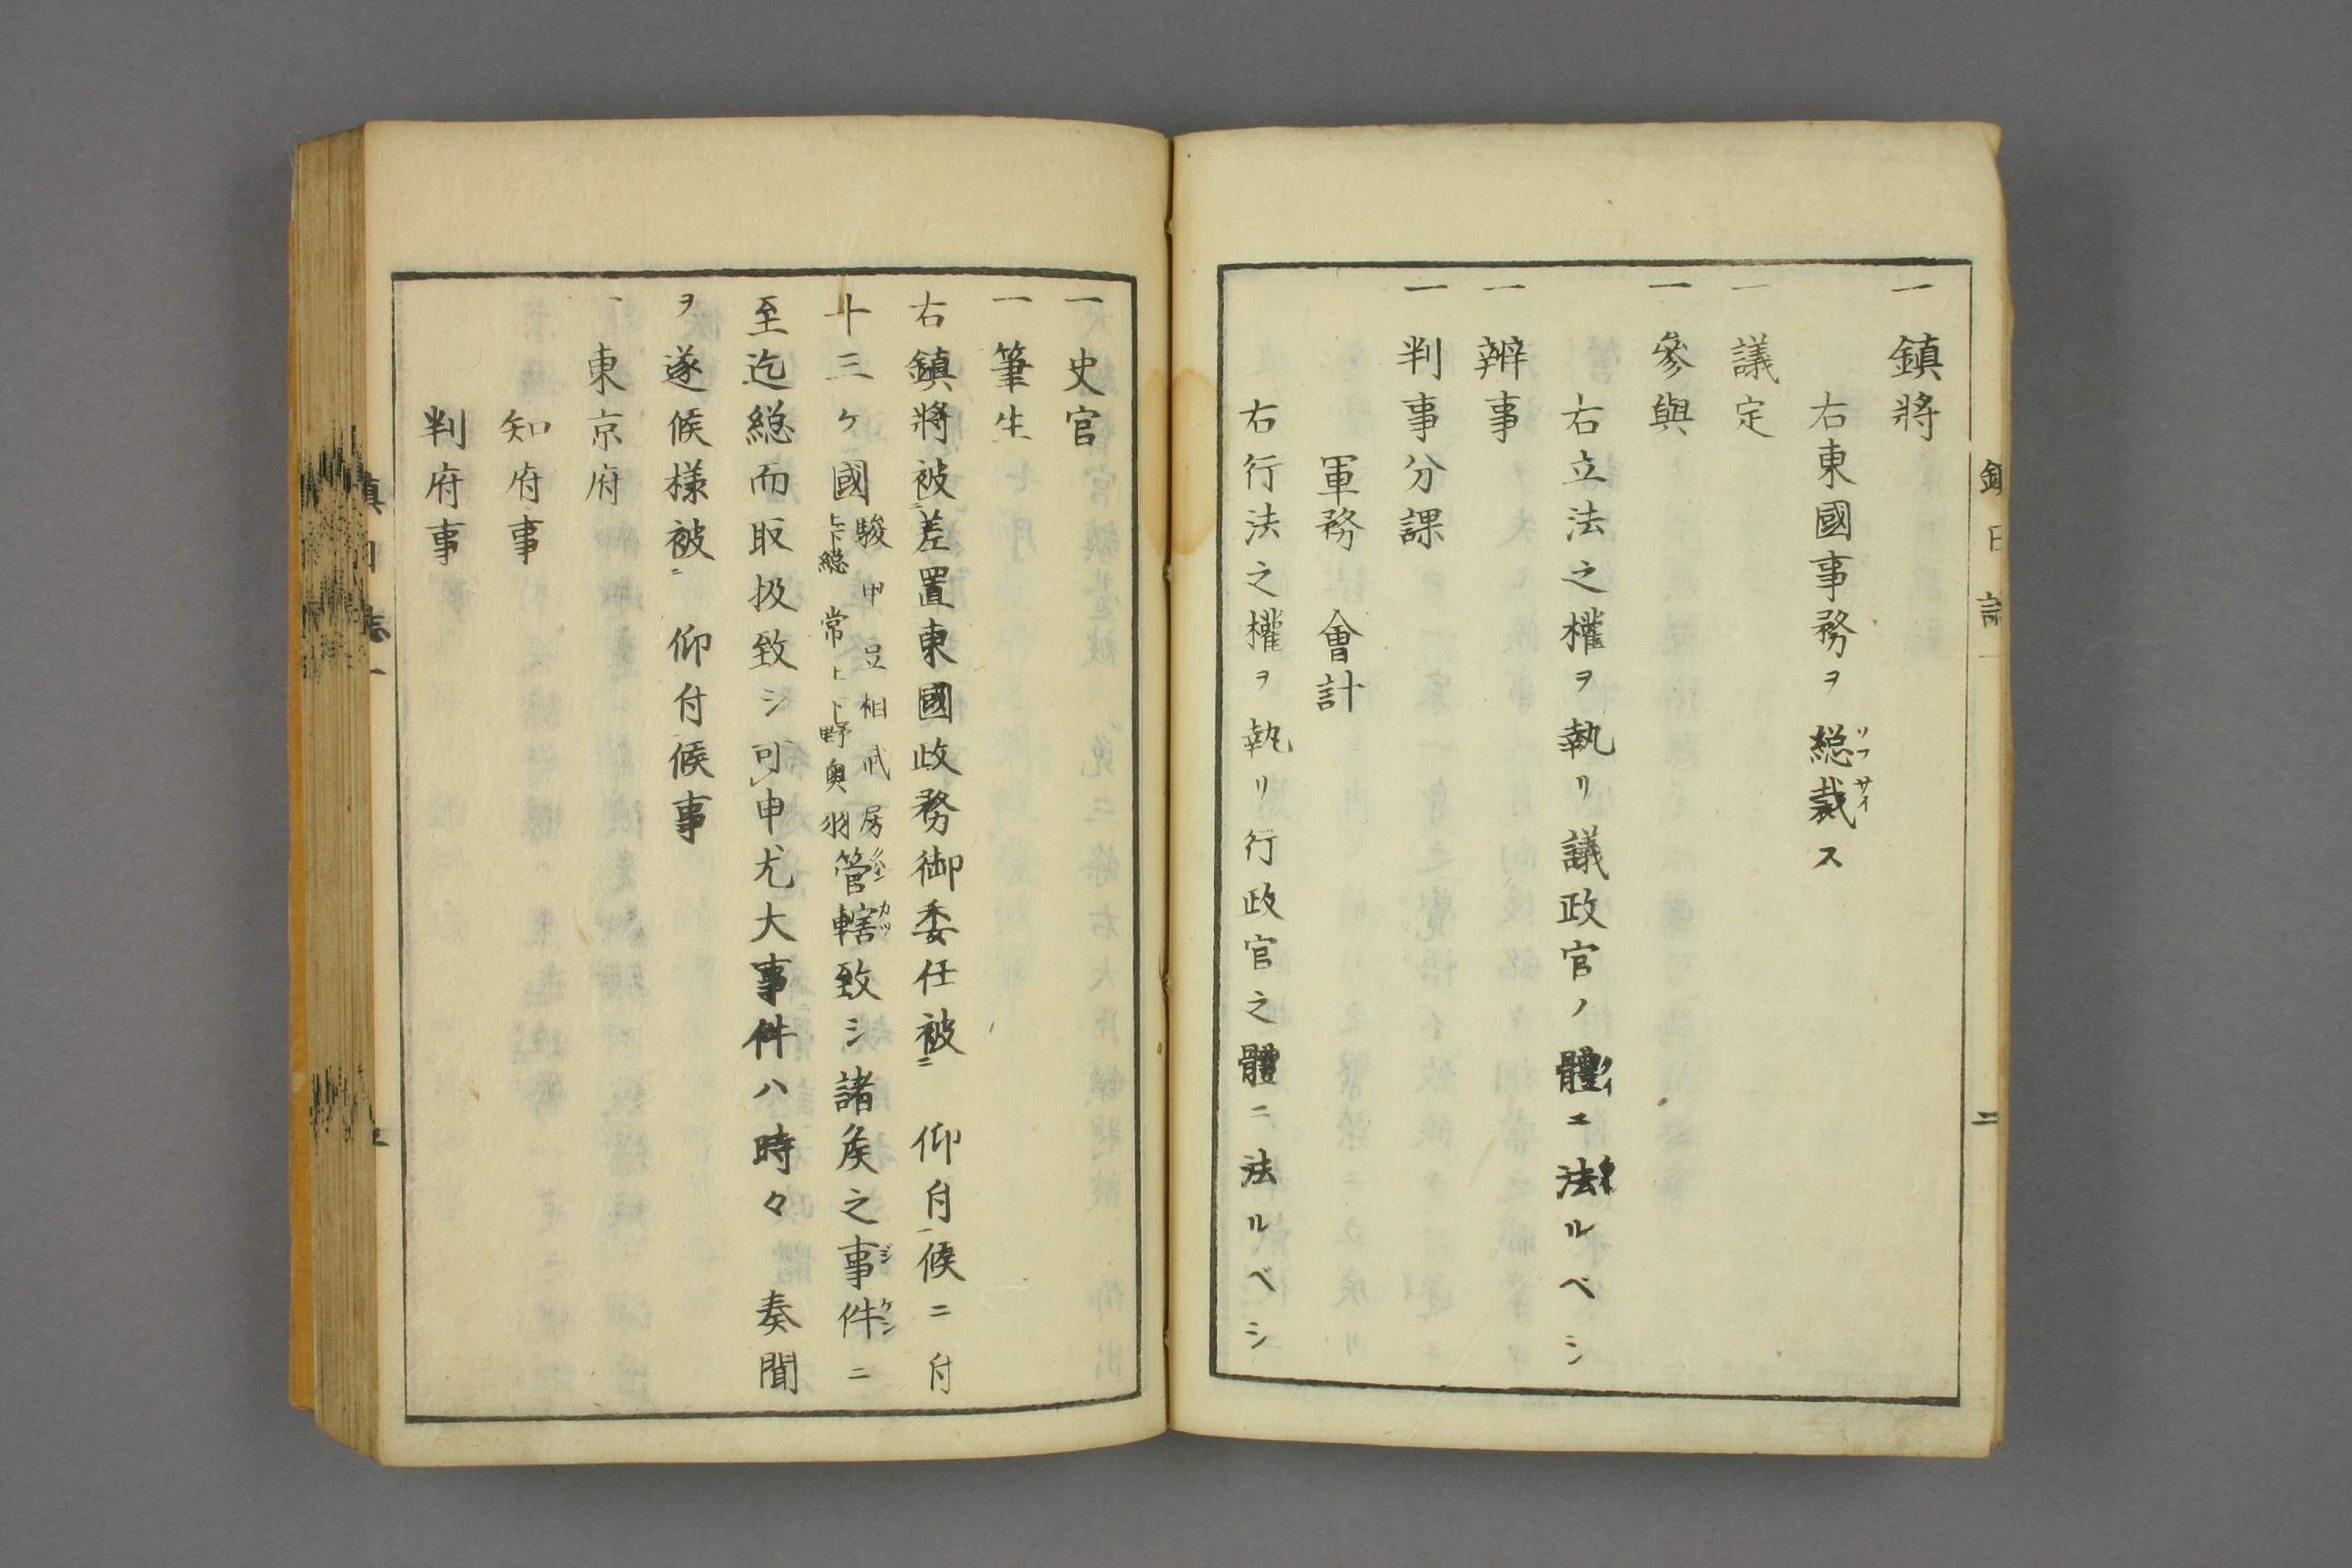 一 鎮將
右東國事務ヲ総裁ス
ソフサイ
一 議定
一 參與
右立法之權ヲ執リ議政官ノ體ニ法ルベシ
一 辨事
一 判事分課
軍務 會計
右行法之權ヲ執リ行政官之體ニ法ルベシ
一 史官
一 筆生
右鎮將被ニ差置東國政務御委任被ニ 仰付候ニ付
十三ケ國駿甲豆相武房上下総常上下野奥羽管轄致シ諸矦之事件ニ
カツ
ジケン
至迄総而取扱致シ可申尤大事件ハ時々 奏聞
ヲ遂候様被ニ 仰付候事
一 東京府
知府事
判府事
二